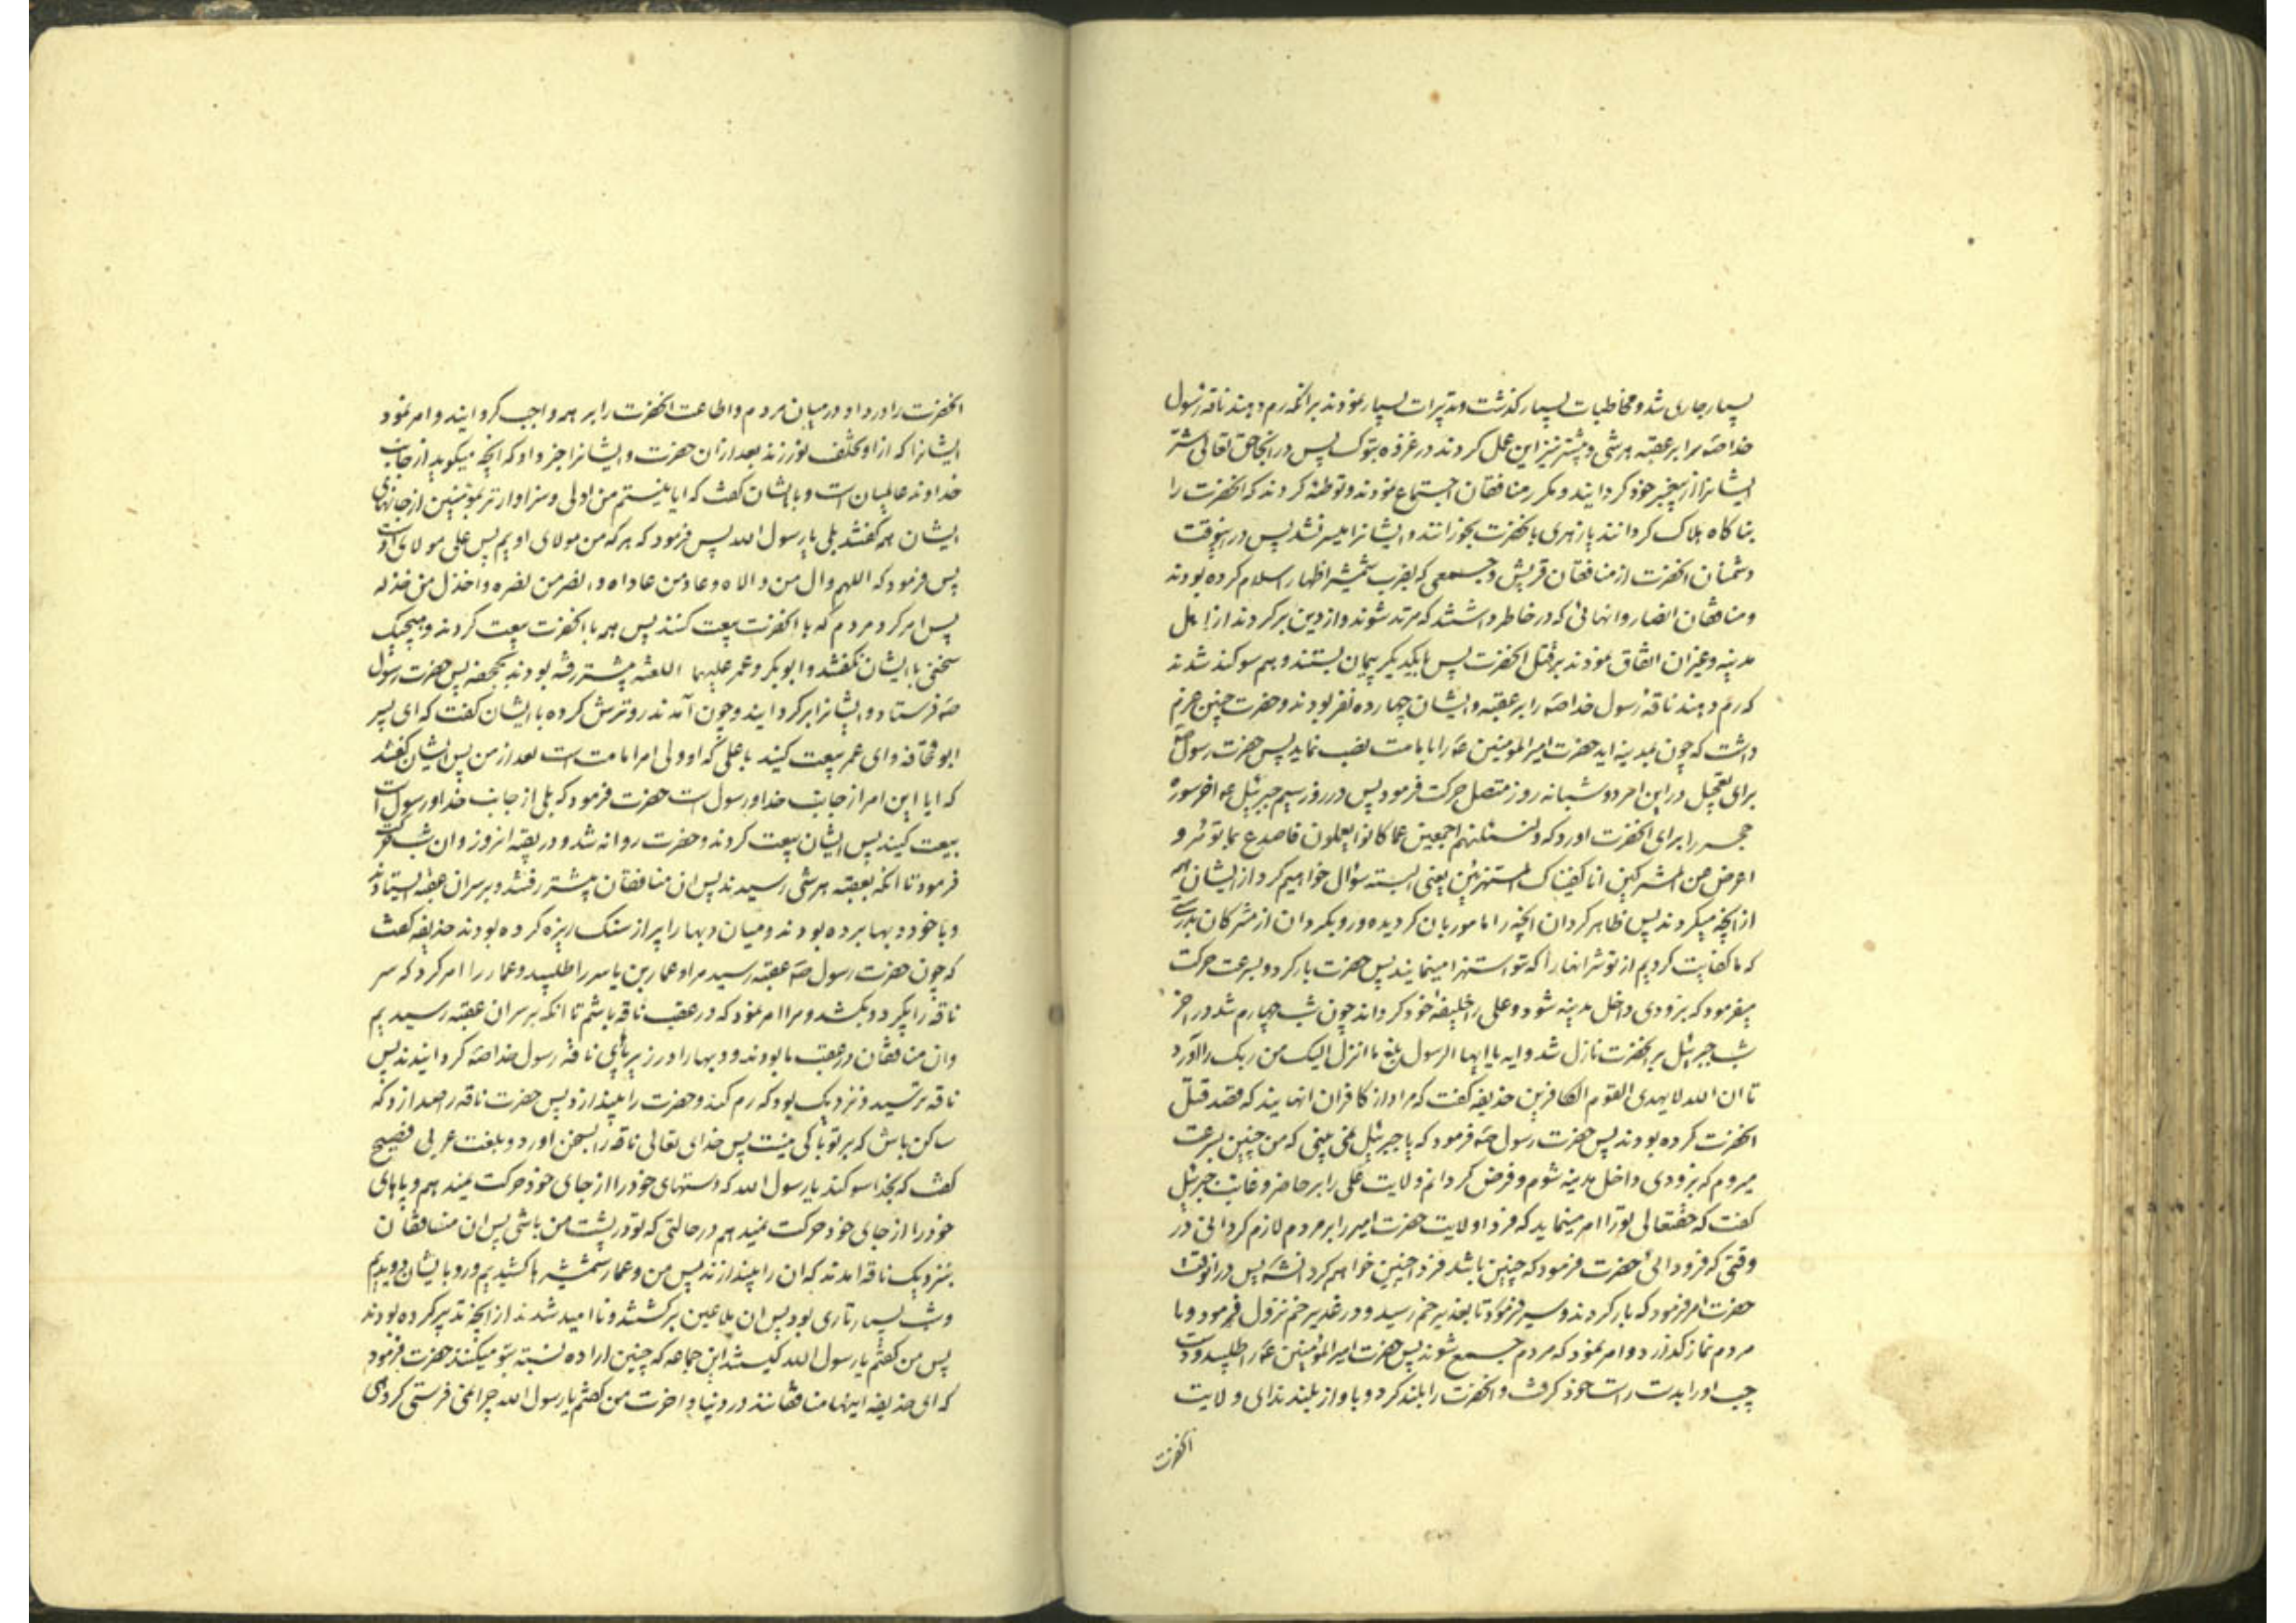 بسیار جاری شد و مخاطبات بسیار کذشت و تدبیرات بسیار نمودند برانکه رم دهند ناقه رسول
خدا صه را بر عقبه هرشی و پیشتر نیز این عمل کردند در غزوه تبوک پس در انجا حق تعالی شر
ایشانرا از پیغمبر خود کردانید و مکرر منافقان اجتماع نمودند و توطئه کردند که انحضرت را
بناکاه هلاک کردانند یا زهری بانحضرت بخورانند و ایشانرا میسر نشد پس در اینوقت
دشمنان انحضرت از منافقان قریش و جمعی که بضرب شمشیر اظهار اسلام کرده بودند
و منافقان انصار و انهائی که در خاطر داشتند که مرتد شوند و از دین برکردند از اهل
مدینه و غیر ان اتفاق نمودند بر قتل انحضرت پس با یکدیکر پیمان بستند و هم سوکند شدند
که رم دهند ناقه رسول خدا صه را بر عقبه و ایشان چهارده نفر بودند و حضرت چنین عزم
داشت که چون بمدینه اید حضرت امیر المومنین عه را بامامت نصب نماید پس حضرت رسول صه
برای تعجیل در این امر دو شبانه روز متصل حرکت فرمود پس در روز سیم جبرئیل عه اخر سوره
حجر را برای انحضرت اورد که ولنسئلنهم اجمعین عما کانوا یعملون فاصدع بما تؤمر و
اعرض عن المشرکین انا کفیناک المستهزئین یعنی البته سؤال خواهیم کرد از ایشان همه
از انچه میکردند پس ظاهر کردان انچه را مامور بان کردیده و رو بکردان از مشرکان بدرستی
که ما کفایت کردیم از تو شر انها را که تو استهزا مینمایند پس حضرت بار کرد و بسرعت حرکت
میفرمود که بزودی داخل مدینه شود و علی را خلیفه خود کرداند چون شب چهارم شد در اخر
شب جبرئیل بر انحضرت نازل شد و ایه یا ایها الرسول بلغ ما انزل الیک من ربک را اورد
تا ان الله لا یهدی القوم الکافرین حذیفه کفت که مراد از کافران انهایند که قصد قتل
انحضرت کرده بودند پس حضرت رسول صه فرمود که یا جبرئیل نمی بینی که من چنین بسرعت
میروم که بزودی داخل مدینه شوم و فرض کردانم ولایت علی را بر حاضر و غایب جبرئیل
کفت که حقتعالی تو را امر مینماید که فردا ولایت حضرت امیر را بر مردم لازم کردانی در
وقتی که فرود ائی حضرت فرمود که چنین باشد فردا چنین خواهم کرد انشه پس در انوقت
حضرت امر فرمود که بار کردند و سیر فرمود تا بغدیر خم رسید و در غدیر خم نزول فرمود و با
مردم نماز کذارد و امر نمود که مردم جمع شوند پس حضرت امیر المؤمنین عه را طلبید و دست
چپ او را بدست راست خود کرفت و انحضرت را بلند کرد و باواز بلند ندای ولایت
انحضرت
انحضرت را در داد در میان مردم و اطاعت انحضرت را بر همه واجب کردانید و امر نمود
ایشانرا که از او تخلف نورزند بعد از ان حضرت و ایشانرا خبر داد که انچه میکوید از جانب
خداوند عالمیان است و با ایشان کفت که ایا نیستم من اولی و سزاوارتر بمؤمنین از جانهای
ایشان همه کفتند بلی یا رسول الله پس فرمود که هر که من مولای اویم پس علی مولای اوست
پس فرمود که اللهم وال من والاه و عاد من عاداه و انصر من نصره و اخذل من خذله
پس امر کرد مردم که با انحضرت بیعت کنند پس همه با انحضرت بیعت کردند و هیچیک
سخنی با ایشان نکفتند و ابو بکر و عمر علیهما اللعنه پیشتر رفته بودند بجحفه پس حضرت رسول
صه فرستاد و ایشانرا برکردانید و چون آمدند رو ترش کرده با ایشان کفت که ای پسر
ابو قحافه و ای عمر بیعت کنید با علی که او ولی امر امامت است بعد از من پس ایشان کفتند
که ایا این امر از جانب خدا و رسول است حضرت فرمود که بلی از جانب خدا و رسول است
بیعت کنید پس ایشان بیعت کردند و حضرت روانه شد و در بقیه انروز و ان شب حرکت
فرمود تا انکه بعقبه هرشی رسیدند پس ان منافقان پیشتر رفتند و بر سر ان عقبه ایستادند
و با خود دبها برده بودند و میان دبها را پر از سنک ریزه کرده بودند حذیفه کفت
که چون حضرت رسول صه عقبه رسید مرا و عمار بن یاسر را طلبید و عمار را امر کرد که سر
ناقه را بکیرد و بکشد و مرا امر نمود که در عقب ناقه باشم تا انکه بر سر ان عقبه رسیدیم
و ان منافقان در عقب ما بودند و دبها را در زیر پای ناقه رسول خدا صه کردانیدند پس
ناقه ترسید و نزدیک بود که رم کند و حضرت را بیندازد پس حضرت ناقه را صدا زد که
ساکن باش که بر تو باکی نیست پس خدای تعالی ناقه را بسخن اورد و بلغت عربی فصیح
کفت که بخدا سوکند یا رسول الله که دستهای خود را از جای خود حرکت نمیدهم و پاهای
خود را از جای خود حرکت نمیدهم در حالتی که تو در پشت من باشی پس ان منافقان
بنزدیک ناقه امدند که ان را بیندازند پس من و عمار شمشیرها کشیدیم و رو بایشان دویدیم
و شب بسیار تاری بود پس ان ملاعین برکشتند و نا امید شدند از انچه تدبیر کرده بودند
پس من کفتم یا رسول الله کیستند این جماعه که چنین اراده نسبت بتو میکنند حضرت فرمود
که ای حذیفه اینها منافقانند در دنیا و اخرت من کفتم یا رسول الله چرا نمی فرستی کروهی